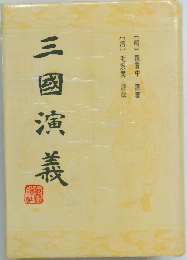 三國演義
〔明〕羅貫中 原著
〔清〕毛宗崗 評改